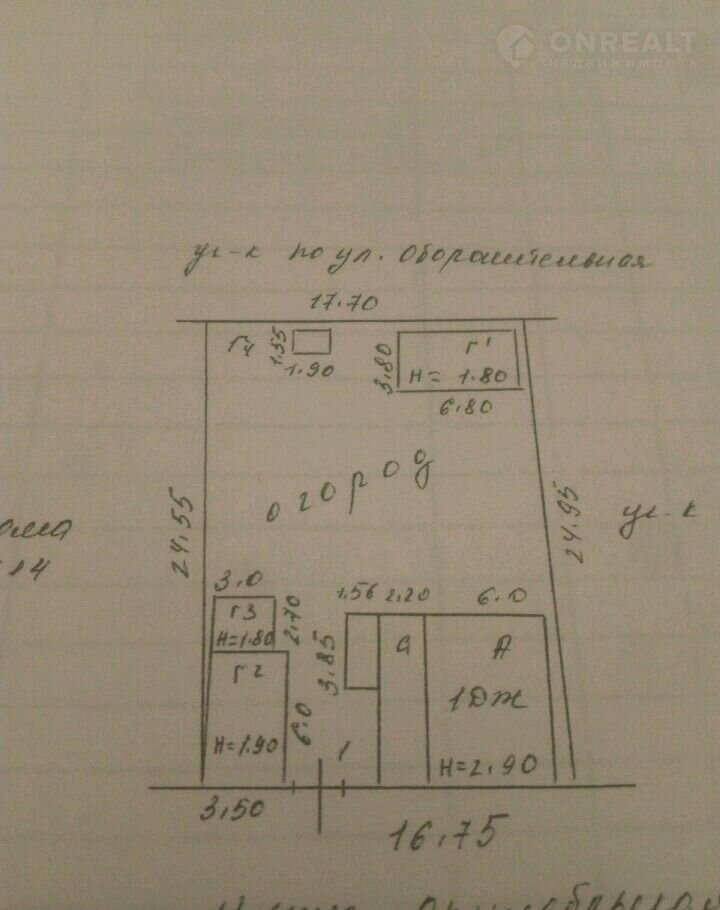 ONREALT
НЕДВИЖИМОСТЬ
уч-к по ул. Оборонительная
17.70
Г4
1.55
1.90
Г1
3.80
Н= 1.80
6.80
огород
24.55
24.95
уч-к
14
3.0
Г3
Н=1.80
2.70
Г2
6.0
Н=1.90
1.56 2.20 6.0
3.85
а
А
1ЮЖ
Н=2.90
1
3,50
16.75